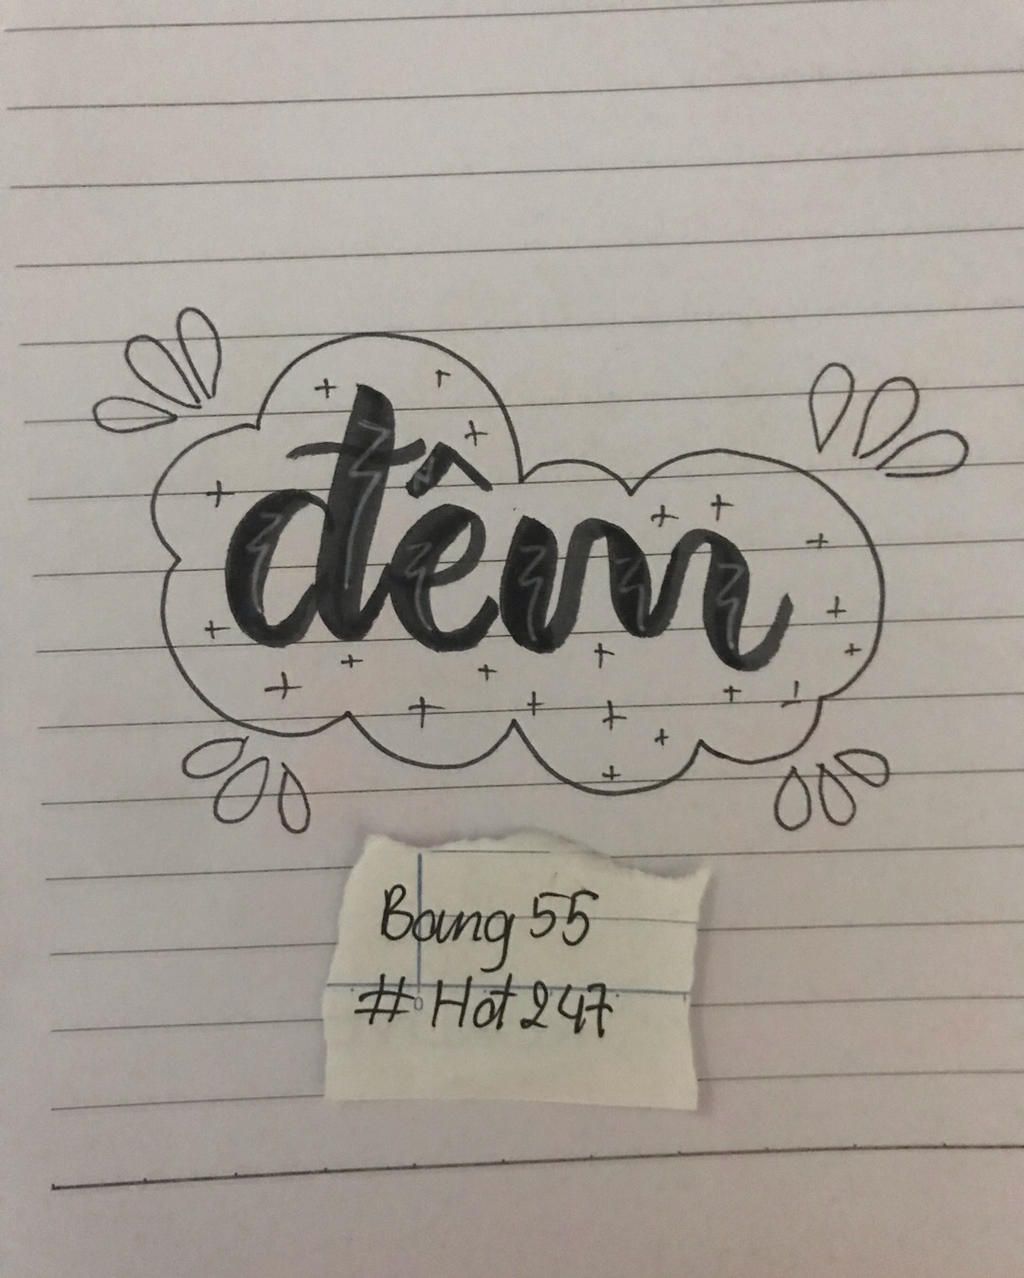 đêm
Bang 55
# Hot 247